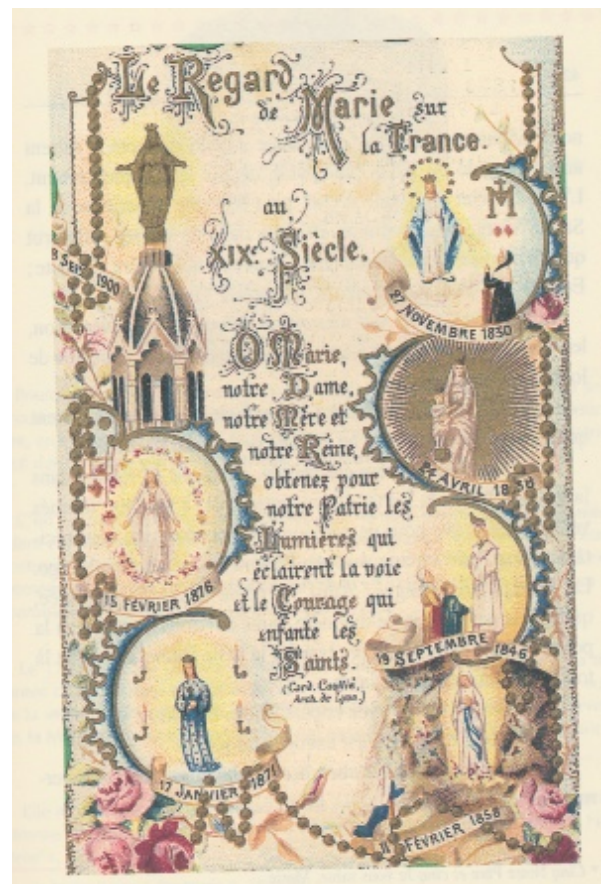 Le Regard
de Marie sur
la France.
au
XIXe Siècle.
8 SEPT 1900
27 NOVEMBRE 1830
O Marie,
notre Dame,
notre Mère et
notre Reine,
obtenez pour
notre Patrie les
Lumières qui
éclairent la voie
et le Courage qui
enfante les
Saints.
(Card. Coullié,
Arch. de Lyon.)
AVRIL
15 FÉVRIER 1876
19 SEPTEMBRE 1846
17 JANVIER 1871
11 FÉVRIER 1858